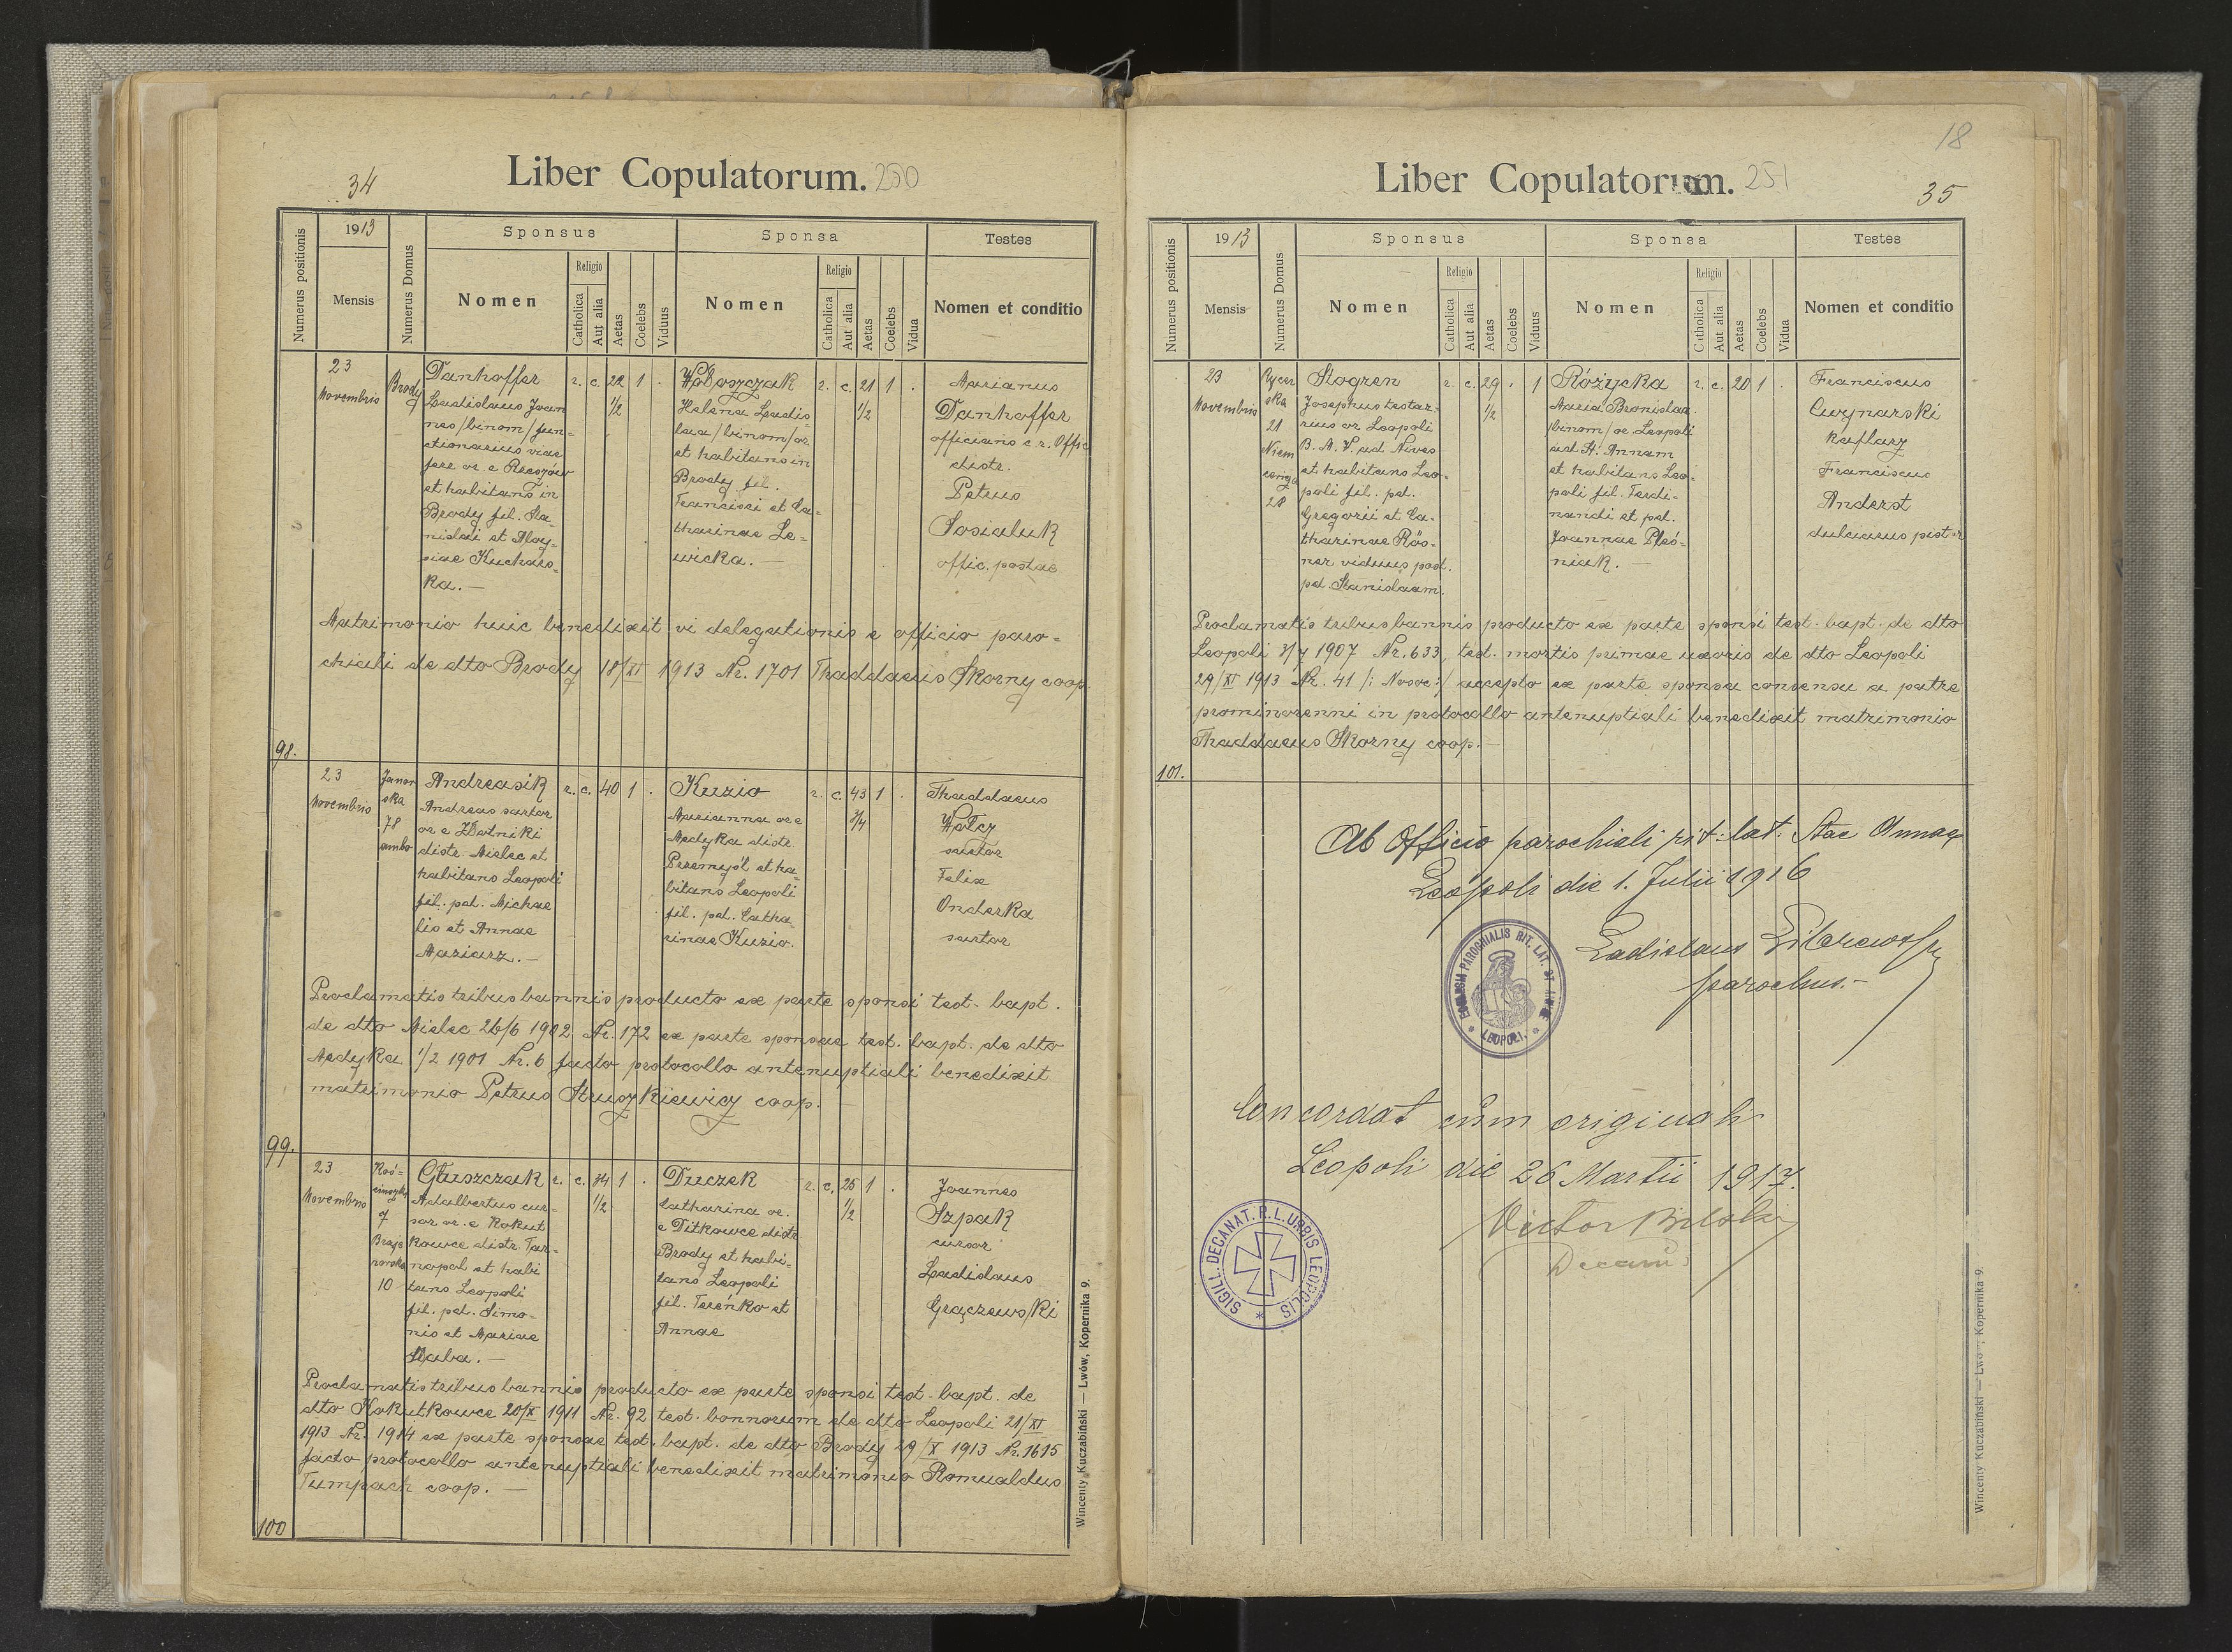 34
Liber Copulatorum. 250
Numerus positionis
1913
Mensis
Numerus Domus
Sponsus
Nomen
Religio
Catholica
Aut alia
Aetas
Coelebs
Viduus
Sponsa
Nomen
Religio
Catholica
Aut alia
Aetas
Coelebs
Vidua
Testes
Nomen et conditio
98.
23
Novembris
Brody
Danhoffer
Ladislaus Joan
nes /binom/ fun=
ctionarius viae
ferr or. e Rzeszów
et habitans in
Brody fil. Sta=
nislai et Aloy=
siae Kuchars=
ka.—
r. c. 22 1/2 1 .
Wołoszczak
Helena Ladis=
laa /binom/ or
et habitans in
Brody fil.
Francisci et Ca=
tharinae Le=
wicka.—
r. c. 21 1/2 1 .
Marianus
Danhoffer
officians c. r. Offic
distr.
Petrus
Sosialuk
offic. postae
Matrimonio huic benedixit vi delegationis e officio paro=
chiali de dto Brody 18/XI 1913 Nr. 1701 Thaddaeus Skorny coop.
99.
23
Novembris
Janow
ska
78
ambo
Andreasik
Andreas sartor
or e Złotniki
distr. Mielec et
habitans Leopoli
fil. pd. Michae
lis et Annae
Maziarz.—
r. c. 40 1 .
Kuzio
Marianna or e
Medyka distr.
Przemyśl et ha=
bitans Leopoli
fil. pd. Catha
rinae Kuzio.
r. c. 43 3/4 1 .
Thaddaeus
Wołcz
sartor
Felix
Onderka
sartor
Proclamatis tribus bannis producto ex parte sponsi test. bapt.
de dto Mielec 26/6 1902 Nr. 172 ex parte sponsae test. bapt. de dto
Medyka 1/2 1901 Nr. 6 facto protocollo antenuptiali benedixit
matrimonio Petrus Struszkiewicz coop.—
100
23
Novembris
Koś=
ciuszki
7
10
Głuszczak
Adalbertus cur=
sor or. e Kokut
kowce distr. Tar=
nopol et habi
tans Leopoli
fil. pd. Simo=
nis et Mariae
Słaba.—
r. c. 34 1/2 1 .
Duczek
Catharina or.
e Ditkowce distr
Brody et habi=
tans Leopoli
fil. Terénko et
Annae
r. c. 25 1/2 1 .
Joannes
Szpak
cursor
Ladislaus
Grączewski
Proclamatis tribus bannis producto ex parte sponsi test. bapt. de
dto Kokutkowce 20/X 1911 Nr. 92 test. bannorum de dto Leopoli 21/XI
1913 Nr. 1914 ex parte sponsae test. bapt. de dto Brody 29/X 1913 Nr. 1615
facto protocollo antenuptiali benedixit matrimonio Romualdus
Tumpach coop.—
Wincenty Kuczabiński — Lwów, Kopernika 9.
18
Liber Copulatorum. 251
35
Numerus positionis
1913
Mensis
Numerus Domus
Sponsus
Nomen
Religio
Catholica
Aut alia
Aetas
Coelebs
Viduus
Sponsa
Nomen
Religio
Catholica
Aut alia
Aetas
Coelebs
Vidua
Testes
Nomen et conditio
101.
23
Novembris
Rycer
ska
21
Niem
cewicza
28
Stogren
Josephus testar
rius or Leopoli
B. M. V. ad Nives
et habitans Leo=
poli fil. pd.
Gregorii et Ca=
tharinae Rös=
ner viduus post.
pd Stanislaam.
r. c. 29 1/2 . 1
Różycka
Maria Bronislaa
/binom/ or Leopoli
ad St. Annam
et habitans Leo=
poli fil. Ferdi=
nandi et pd.
Joannae Pleś=
niak.—
r. c. 20 1 .
Franciscus
Cwynarski
kaflarz
Franciscus
Anderst
dulciarius pistor
Proclamatis tribus bannis producto ex parte sponsi test. bapt. de dto
Leopoli 3/7 1907 Nr. 633, test. mortis primae uxoris de dto Leopoli
29/XI 1913 Nr. 41 /: Nosoc:/ accepto ex parte sponsa consensu a patre
prominorenni in protocollo antenuptiali benedixit matrimonio
Thaddaeus Skorny coop.—
Ab Officio parochiali rit: lat: Stae Annae
Leopoli die 1. Julii 1916
Ladislaus
parochus.—
PAROCHIALIS RIT. LAT. ST. ANNAE * LEOPOLI. *
Concordat cum originali
Leopoli die 26 Martii 1917.
Victor
Decanus
SIGILL. DECANAT. R. L. URBIS LEOPOLIS *
Wincenty Kuczabiński — Lwów, Kopernika 9.